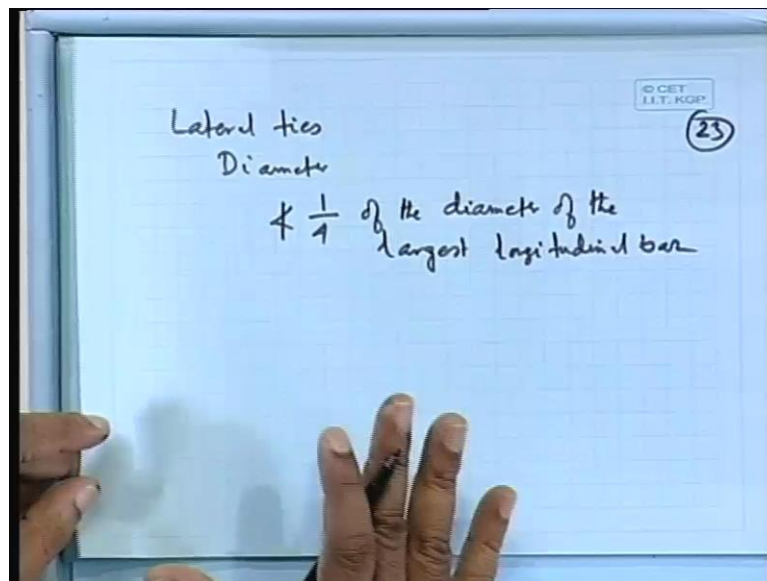 © CET
I.I.T. KGP
23
Lateral ties
Diameter
≮ 1/4 of the diameter of the
largest longitudinal bar